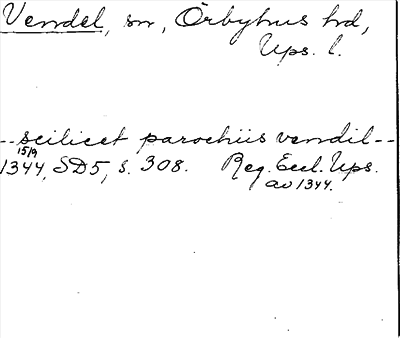 Vendel, sn, Örbyhus hd,
Ups. l.
--scilicet parochiis vendil--
15/9
1344, SD5, s. 308. Reg. Eccl. Ups.
av 1344.